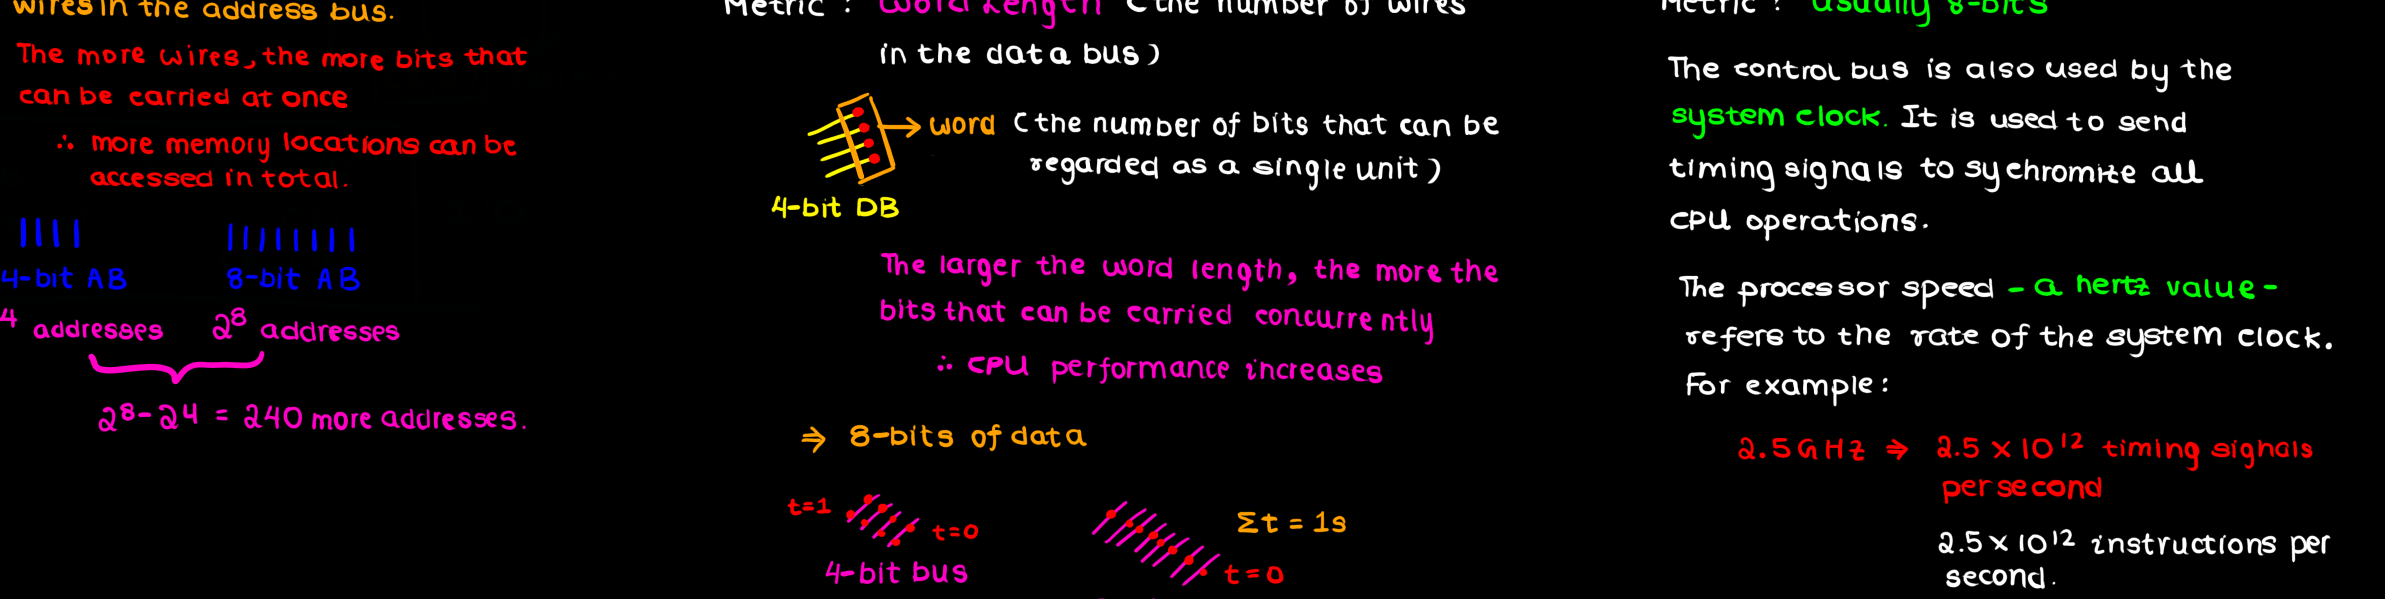 wires in the address bus.
The more wires, the more bits that
can be carried at once
∴ more memory locations can be
accessed in total.
4-bit AB 8-bit AB
4 addresses 2⁸ addresses
2⁸ - 2⁴ = 240 more addresses.
Metric : Word Length (the number of wires
in the data bus)
→ word (the number of bits that can be
regarded as a single unit)
4-bit DB
The larger the word length, the more the
bits that can be carried concurrently
∴ CPU performance increases
⇒ 8-bits of data
t=1 t=0
4-bit bus
Σt = 1s
t=0
Metric : Usually 8-bits
The control bus is also used by the
system clock. It is used to send
timing signals to sychromize all
CPU operations.
The processor speed - a hertz value -
refers to the rate of the system clock.
For example :
2.5GHz ⇒ 2.5 × 10¹² timing signals
per second
2.5 × 10¹² instructions per
second.